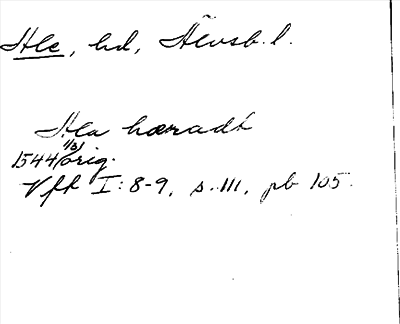 Ale, hd, Älvsb. l.
Ala haradt
1544 1/3/ orig.
Vfr I: 8-9, s. 111, pb 105.